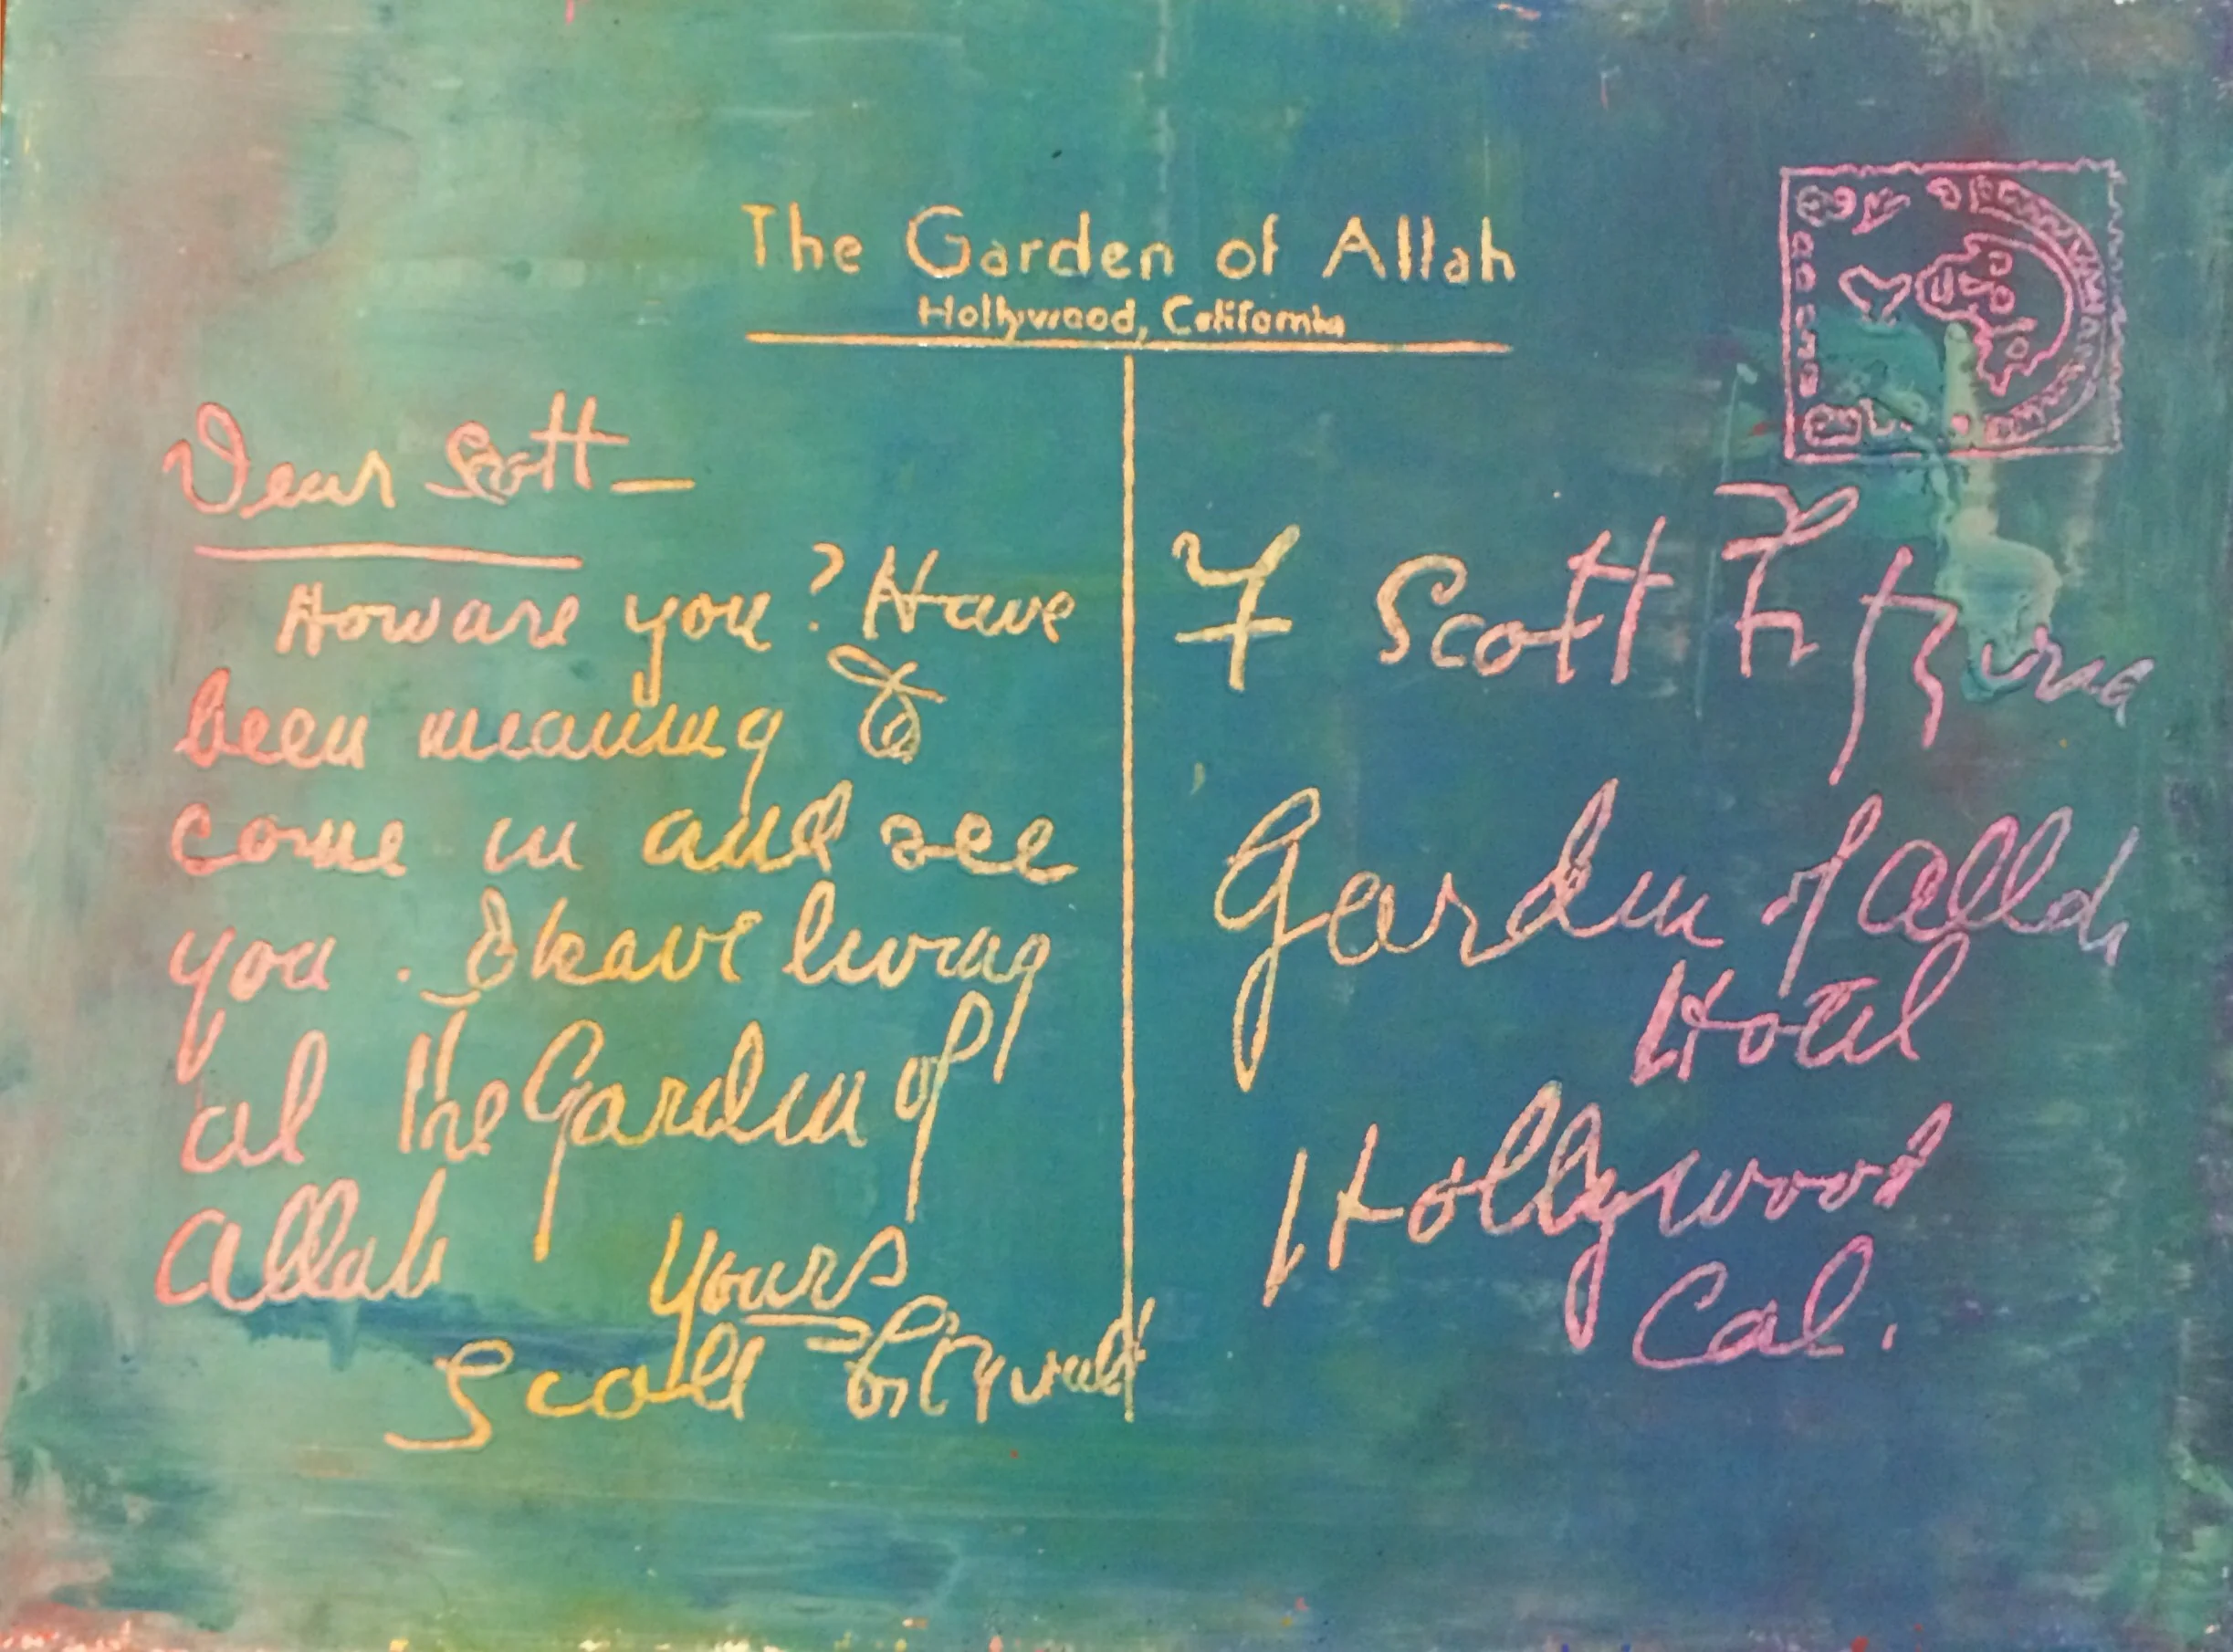 The Garden of Allah
Hollywood, California
Dear Scott —
How are you? Have
been meaning to
come in and see
you. I have living
at the Garden of
Allah
Yours
Scott Fitzgerald
F Scott Fitzgerald
Garden of Allah
Hotel
Hollywood
Cal.